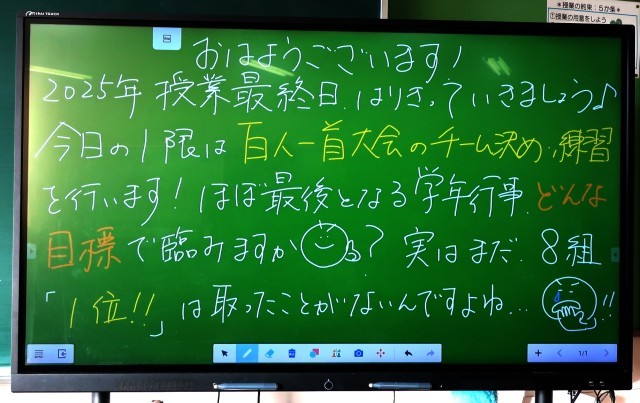 *授業の約束:5か条*
①授業の用意をしよう
おはようございます!
2025年 授業最終日、はりきっていきましょう♪
今日の1限は 百人一首大会のチーム決め・練習
を行います! ほぼ最後となる学年行事、どんな
目標で臨みますか る? 実はまだ、8組
「1位!!」は取ったことがないんですよね… !!
1/1